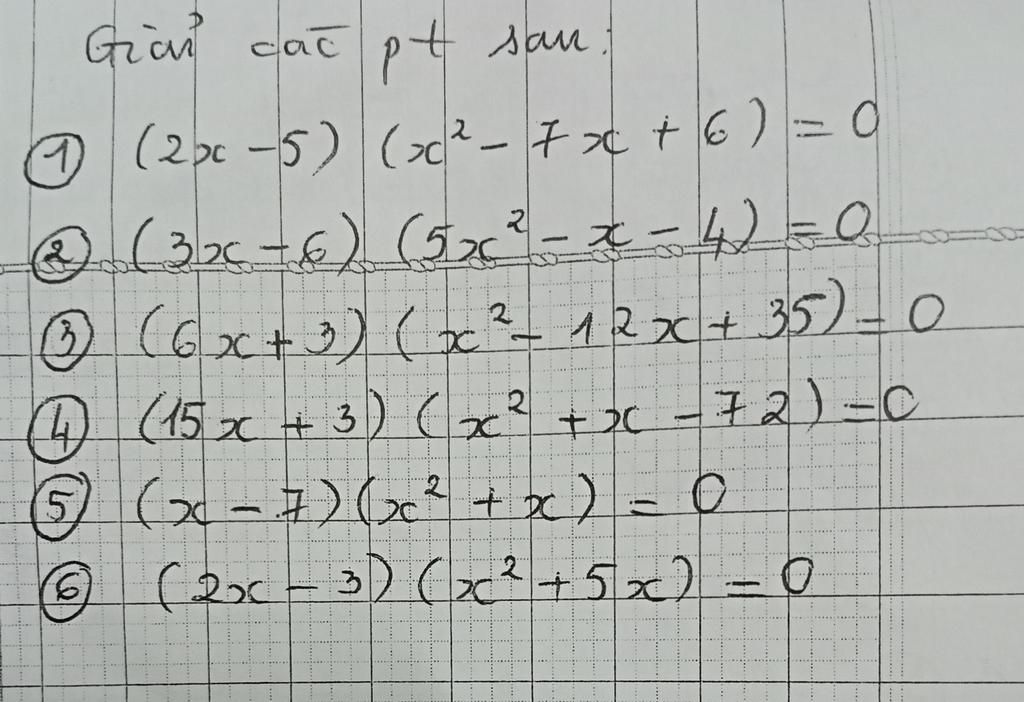 Giải các pt sau:
① (2x - 5) (x² - 7x + 6) = 0
② (3x - 6) (5x² - x - 4) = 0
③ (6x + 3) (x² - 12x + 35) = 0
④ (15x + 3) (x² + x - 72) = 0
⑤ (x - 7) (x² + x) = 0
⑥ (2x - 3) (x² + 5x) = 0